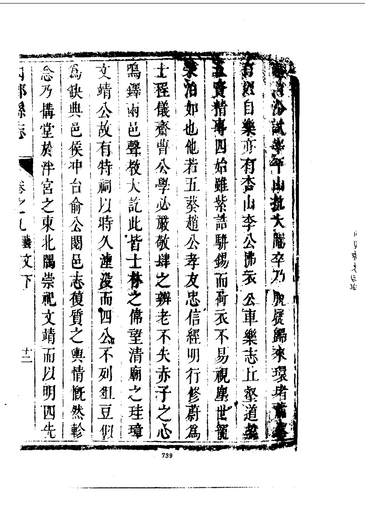 試學午山抗大閹卒乃脫屣歸來環堵蕭
自樂亦有杏山李公拂衣公車樂志丘壑道義
精專四始雖紫誥駢錫而荷衣不易視塵世寵
榮泊如也他若五葵趙公孝友忠信經明行修蔚爲
士程儀齋曹公學必嚴敬肆之辨老不失赤子之心
鳴鐸兩邑聲教大訖此皆士林之偉望清廟之珪璋
文靖公故有特祠以時久湮沒而四公不列俎豆似
爲缺典邑侯冲台俞公閱邑志復質之輿情慨然軫
念乃搆堂於泮宮之東北隅崇祀文靖而以明四先
縣志
卷之九
藝文下
十二
739